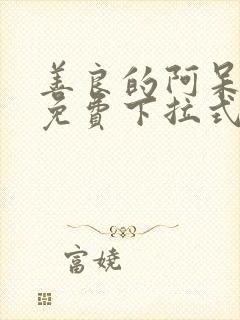 善良的阿呆
免費下拉式
富娆